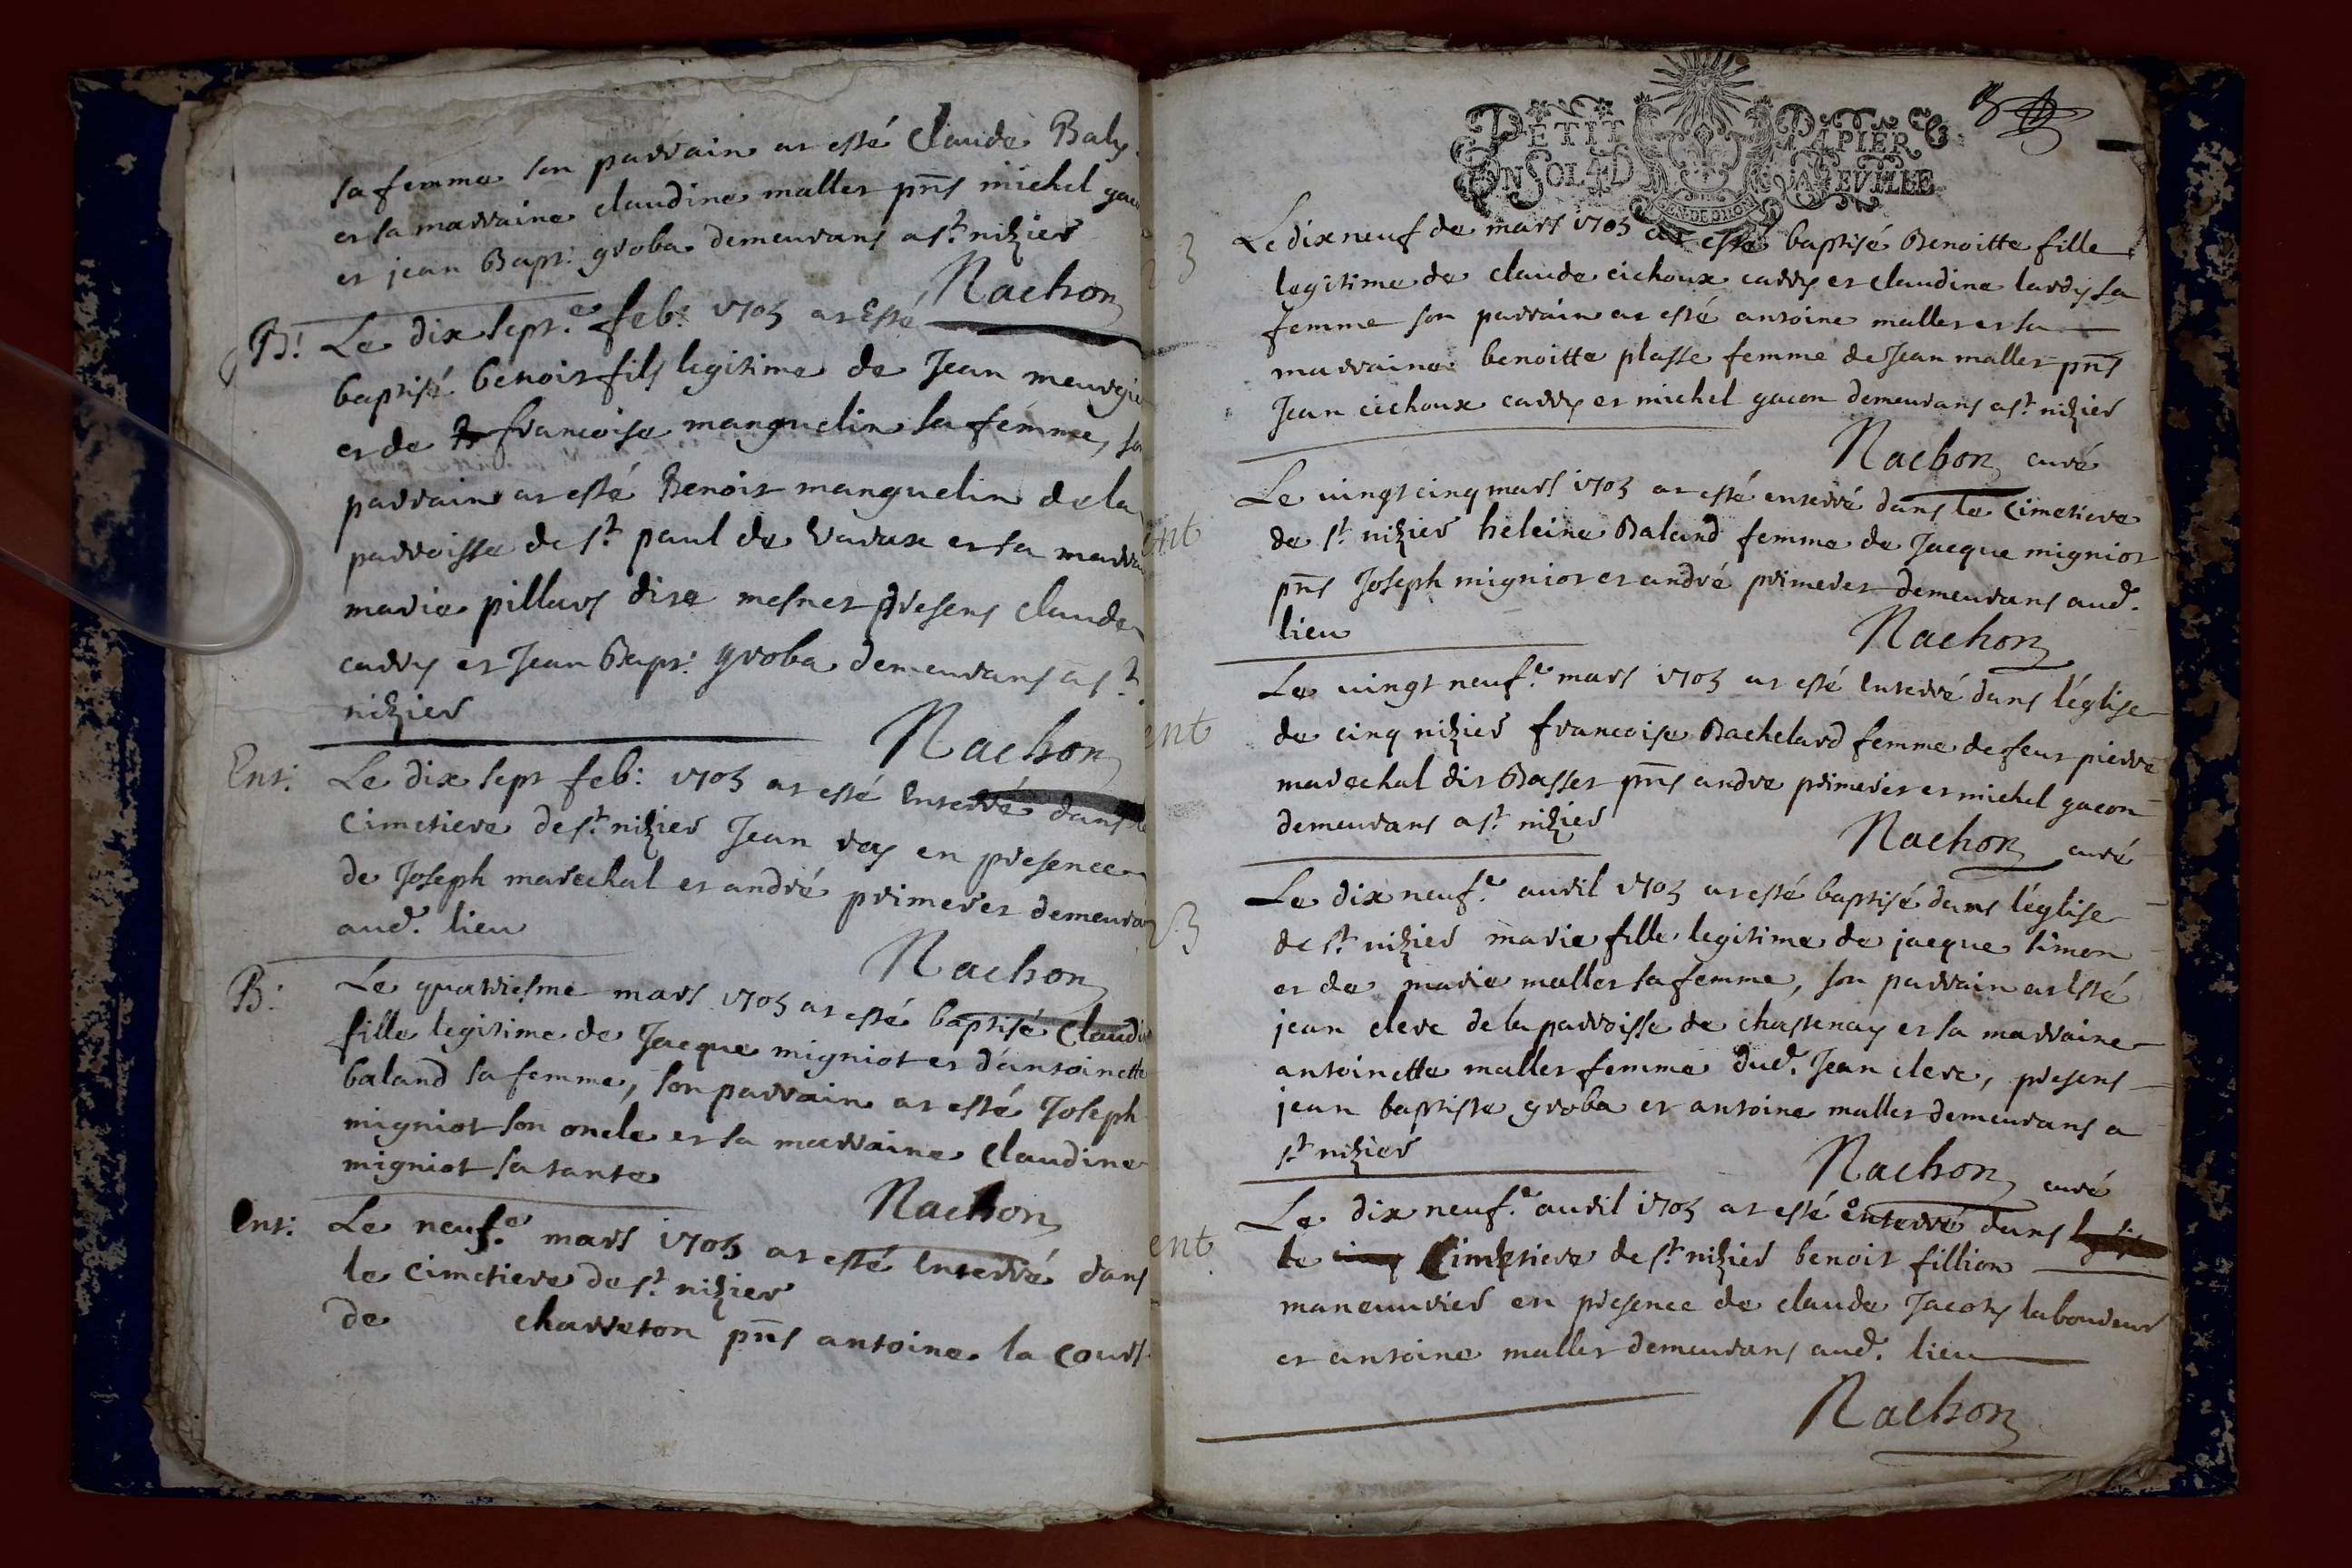 sa femme son parrain at esté Claude Baly
et sa marraine claudine mallet pñs michel
et jean Bapt: groba demeurans a st. nizier
Nachon
B: Le dix sept.e feb: 1703 at Esté
baptisé benoit fils legitime de Jean
et de francoise manguelin sa femme, so
parrain at esté Benoit manguelin de la
parroisse de st. paul de Varax et sa marra
marie pillars dite mesnet presens claude
carry et Jean Bapt: groba demeurans a st.
nizier
Nachon
Ent: Le dix sept feb: 1703 at esté Enterré dans le
Cimetiere de st. nizier Jean ray en presence
de Joseph marechal et andré primeret demeura
aud. lieu
Nachon
B: Le quatriesme mars 1703 at esté baptisé Claudi
fille legitime de Jacque migniot et d'antoinette
baland sa femme, son parrain at esté Joseph
migniot son oncle et sa marraine Claudine
migniot sa tante
Nachon
Ent: Le neuf.e mars 1703 at esté Enterré dans
le cimetiere de st. nizier
de charreton pñs antoine la cours
PETIT PAPIER
UN SOL 4 D LA FEVILLE
Le dix neuf de mars 1703 at esté baptisé Benoitte fille
legitime de claude cichoux carry et claudine lardy sa
femme son parrain at esté antoine mallet et sa
marraine benoitte plasse femme de Jean mallet pñs
Jean cichoux carry et michel gacon demeurans a st. nizier
Nachon curé
ent Le vingt cinq mars 1703 at esté enterré dans le Cimetiere
de st. nizier heleine Baland femme de Jacque migniot
pñs Joseph migniot et andré primeret demeurans aud.
lieu
Nachon
ent Le vingt neuf.e mars 1703 at esté Enterré dans l'église
de cinq nizier francoise Bachelard femme de feut pierre
marechal dit Basset pñs andre primeret et michel gacon
demeurans a st. nizier
Nachon curé
B Le dix neuf.e auril 1703 at esté baptisé dans l'église
de st. nizier marie fille legitime de jacque simon
et de marie mallet sa femme, son parrain at Esté
jean clerc de la parroisse de chastenay et sa marraine
antoinette mallet femme dud. Jean clerc, presens
jean baptiste groba et antoine mallet demeurans a
st. nizier
Nachon curé
ent Le dix neuf.e auril 1703 at esté enterré dans
le Cimetiere de st. nizier benoit fillion
maneuurier en presence de claude Jacoty laboureur
et antoine mallet demeurans aud. lieu
Nachon